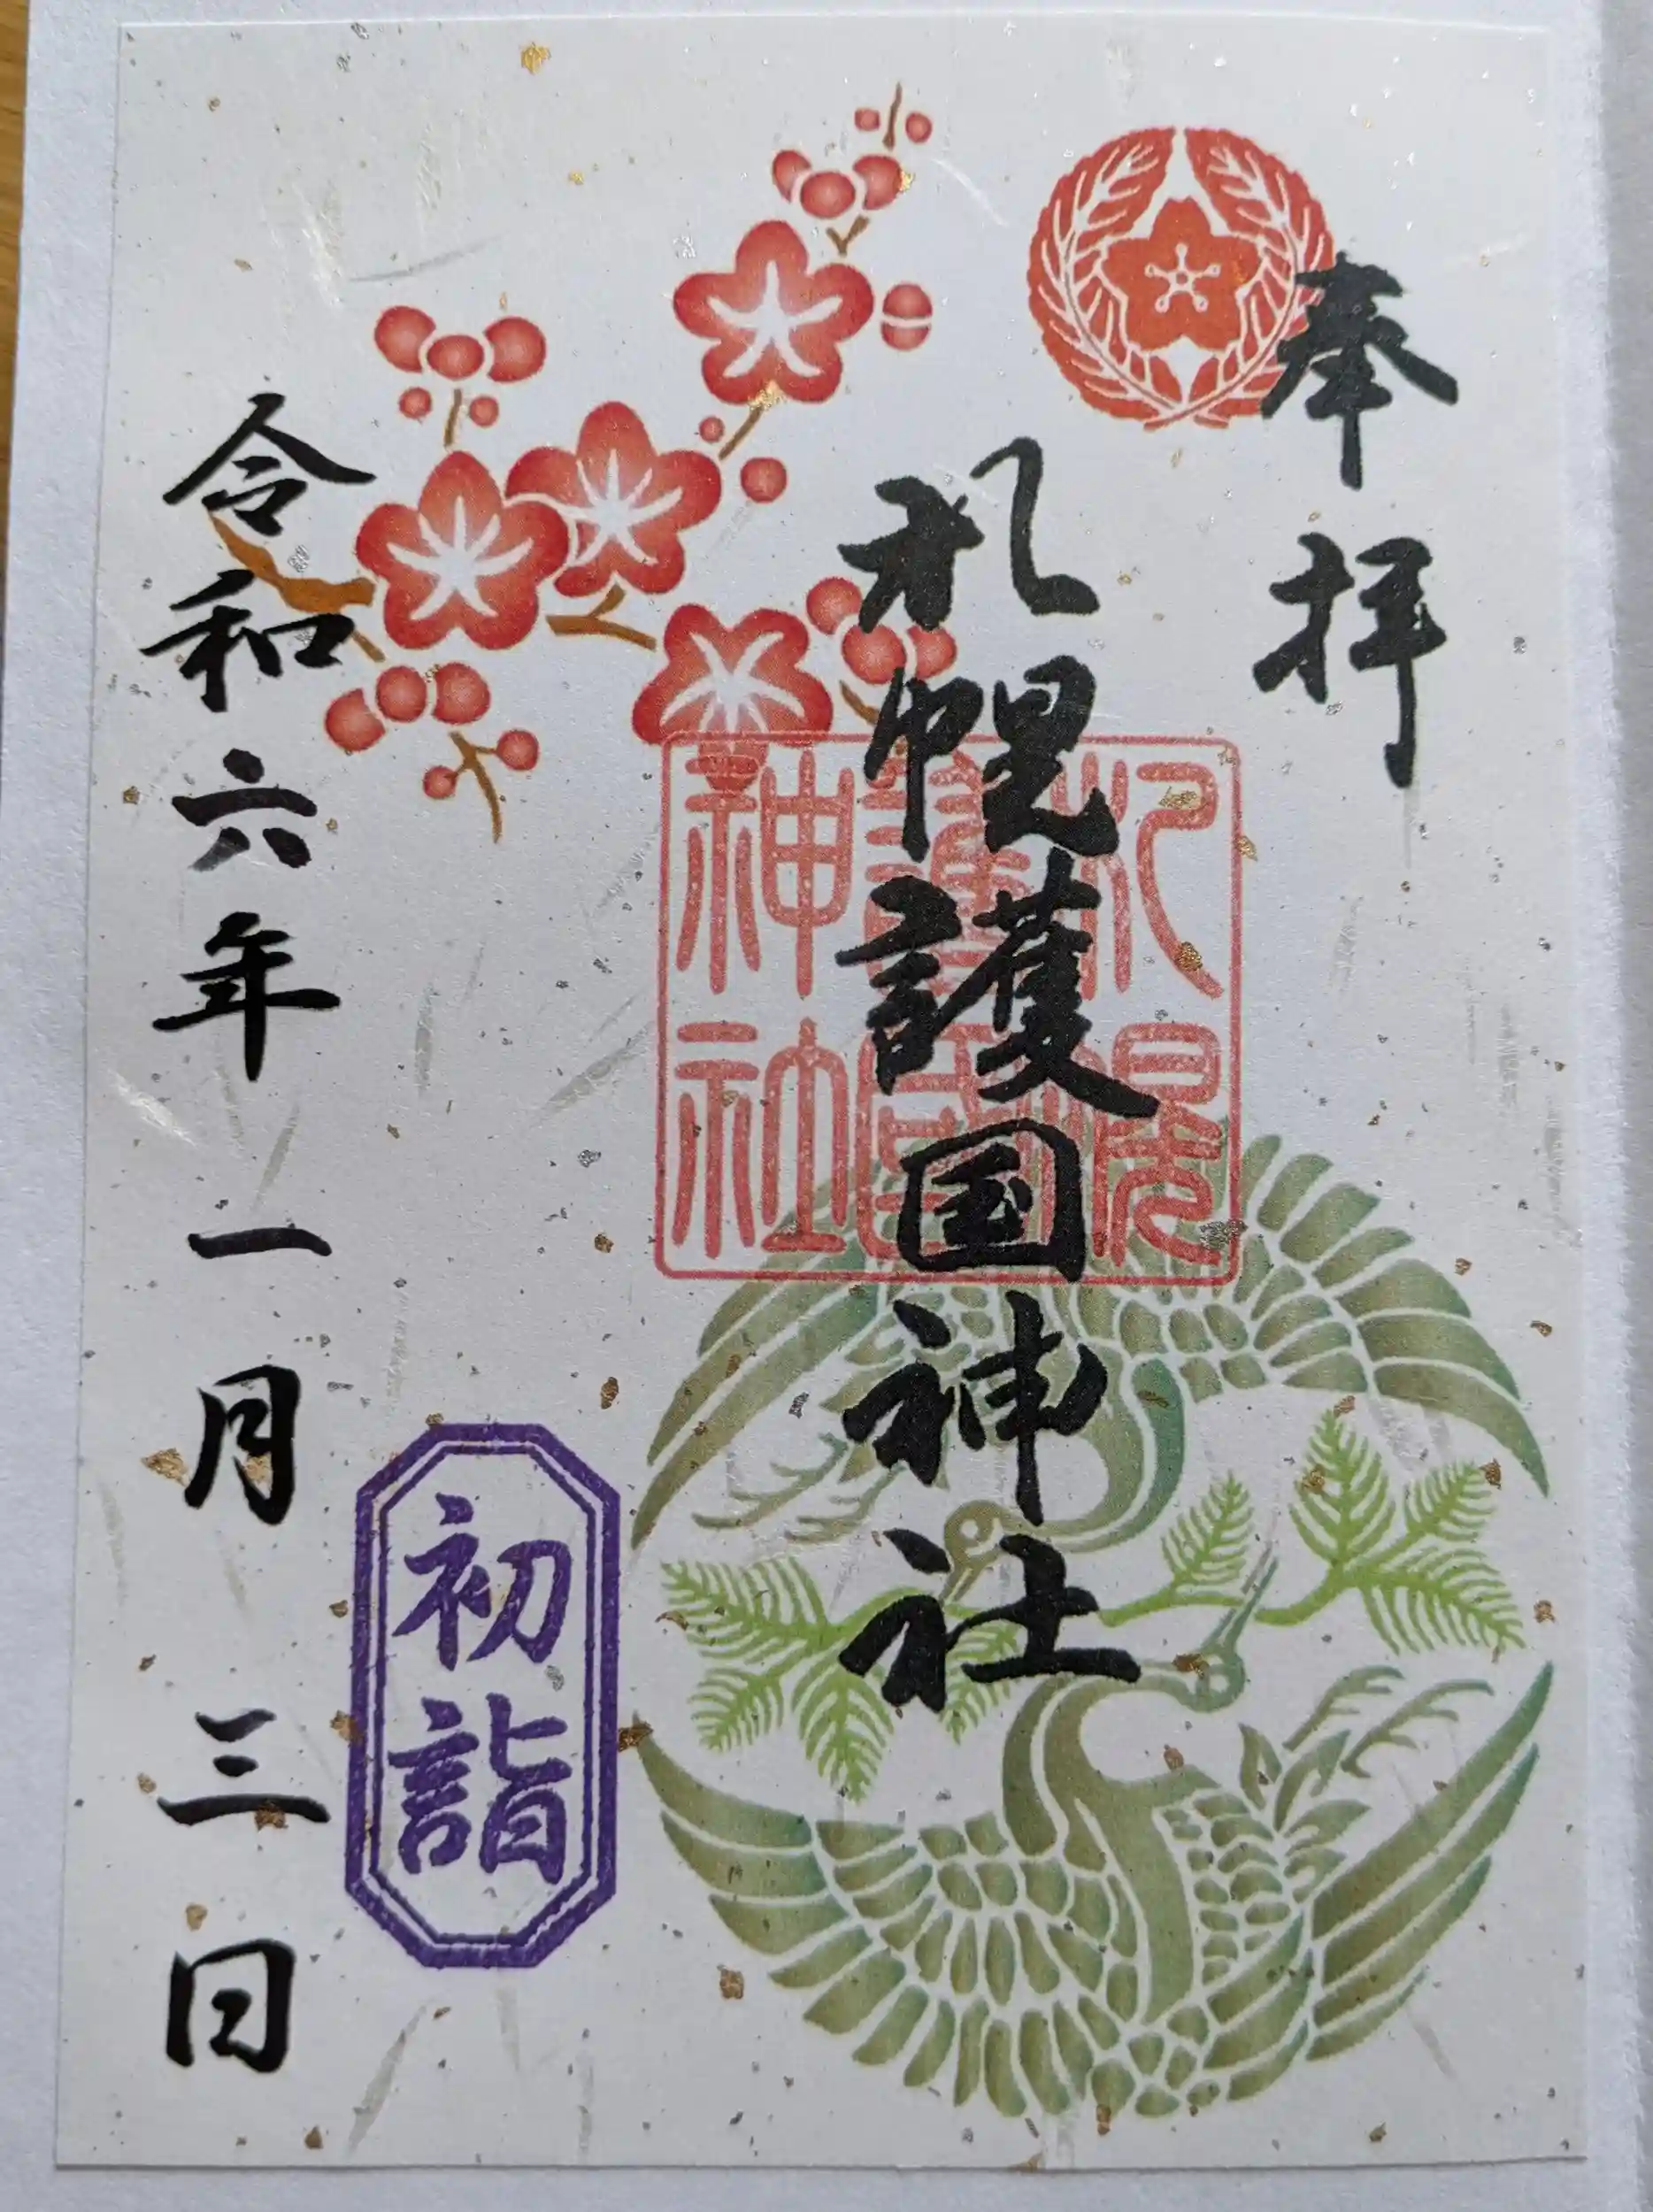 奉拝
札幌護国神社
札幌
護國
神社
初詣
令和六年一月三日